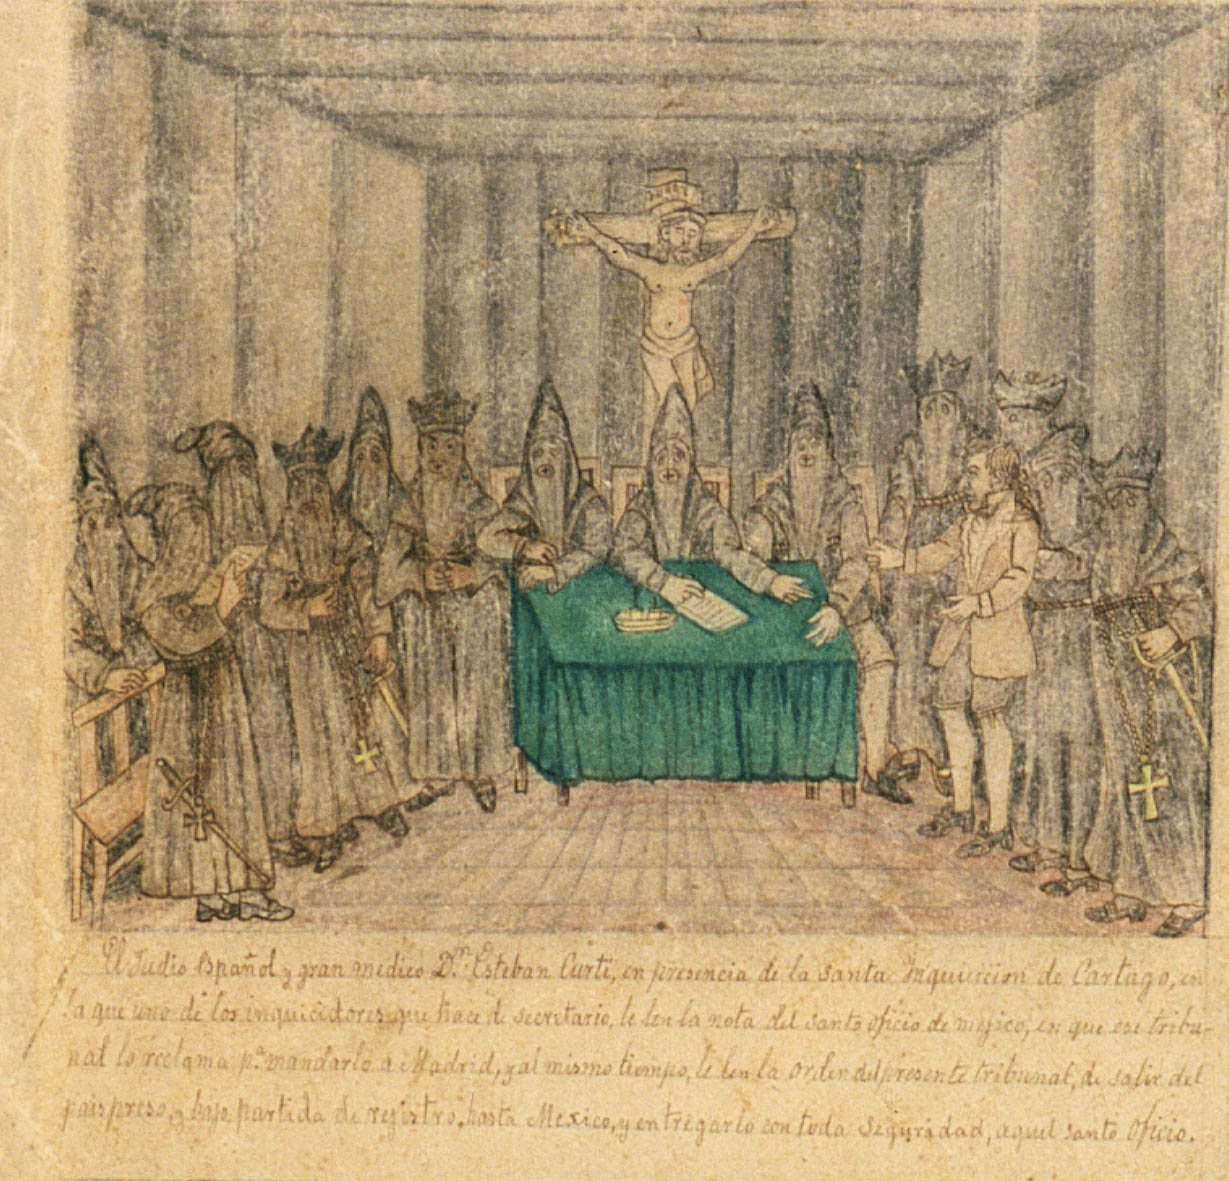 INRI
El Judio Español y gran medico Dn. Esteban Curti, en presencia de la santa Inquicicion de Cartago, en
la que uno de los inquicidores que hace de secretario, le len la nota del santo oficio de mejico, en que ese tribu-
nal lo reclama pa. mandarlo a Madrid, y al mismo tiempo, le len la orden del presente tribunal, de salir del
pais preso, y bajo partida de rejistro, hasta Mexico, y entregarlo con toda seguridad, aquel santo oficio.